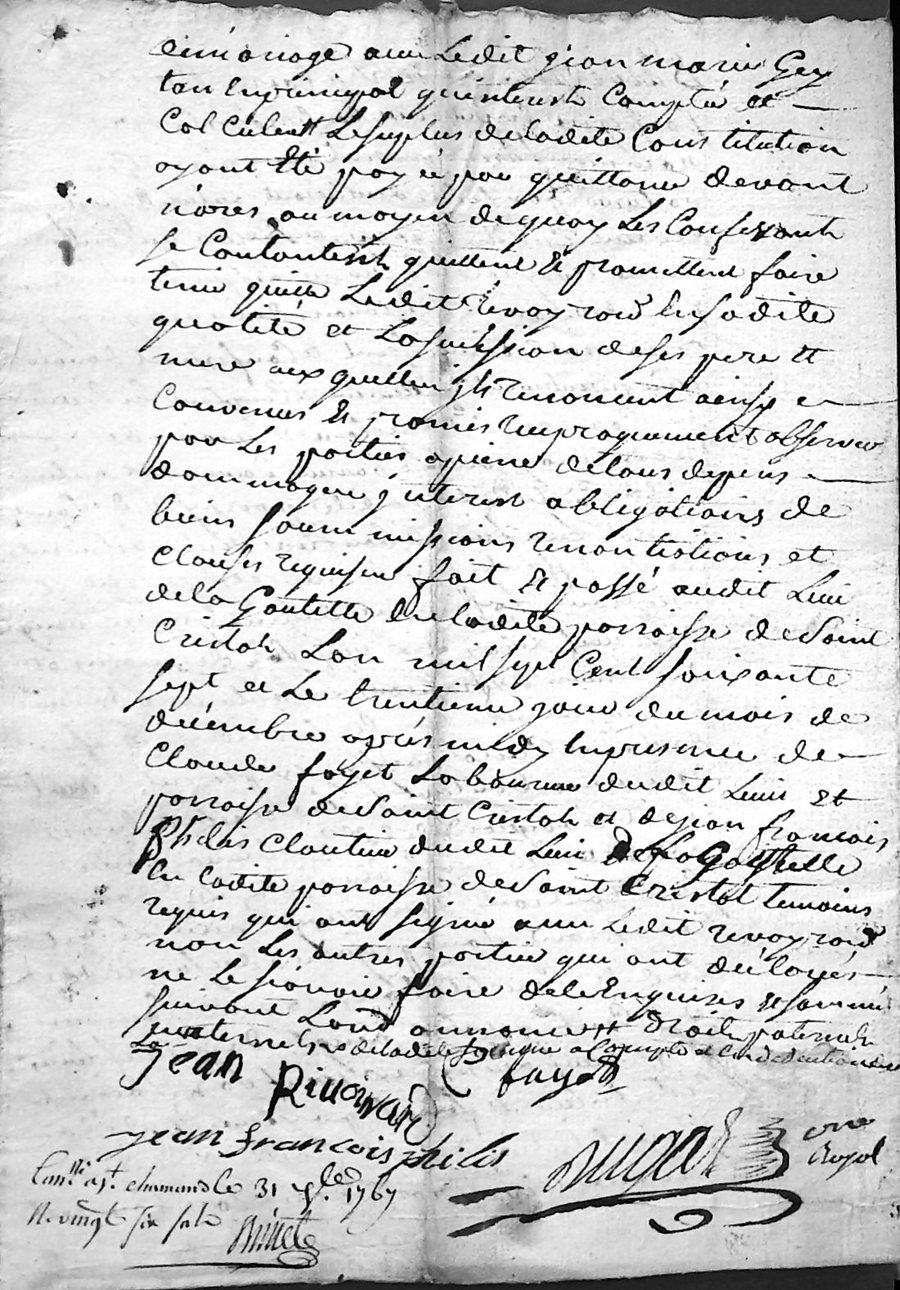 de mariage avec Ledit jean marie Gey
tan En principal qu'interest Compté et
Calculé Le surplus de ladite Constitution
ayant Eté payé par quittance devant
nores au moyen de quoy Les Confessants
se Contentent quittent Et promettent faire
tenir quitte Ledit revoyrard En sadite
qualité et La succession de ses pere Et
mere auxquelles ils renoncent ainsy
Convenus Et promis reciproquement observer
par Les parties a peine de tous depens
dommages jnterest obligations de
biens soummissions renontiations et
Clauses requises fait Et passé audit Lieu
de la Goutette En ladite parroisse de Saint
Cristoh Lan mil sept Cent soixante
sept et Le trentieme jour du mois de
décémbre apprés midy En presence de
Claude fayet Laboureur dudit Lieu Et
parroisse de Saint Cristoh et de jean francois
philis Cloutier dudit Lieu de la Gouttelle
En ladite parroisse de Saint Cristot temoins
requis qui ont signé avec Ledit revoyrard
non Les autres parties qui ont déclarés
ne Le scavoir faire de ce Enquises Et sommés
suivant Lord annonce Et droit paternels
maternels de ladite a Compte
Jean Rivoirard fayet
jean francois philis
dugas nore Royal
Con.lé a st. chamond le 31 xbre 1767
R. vingt six sols